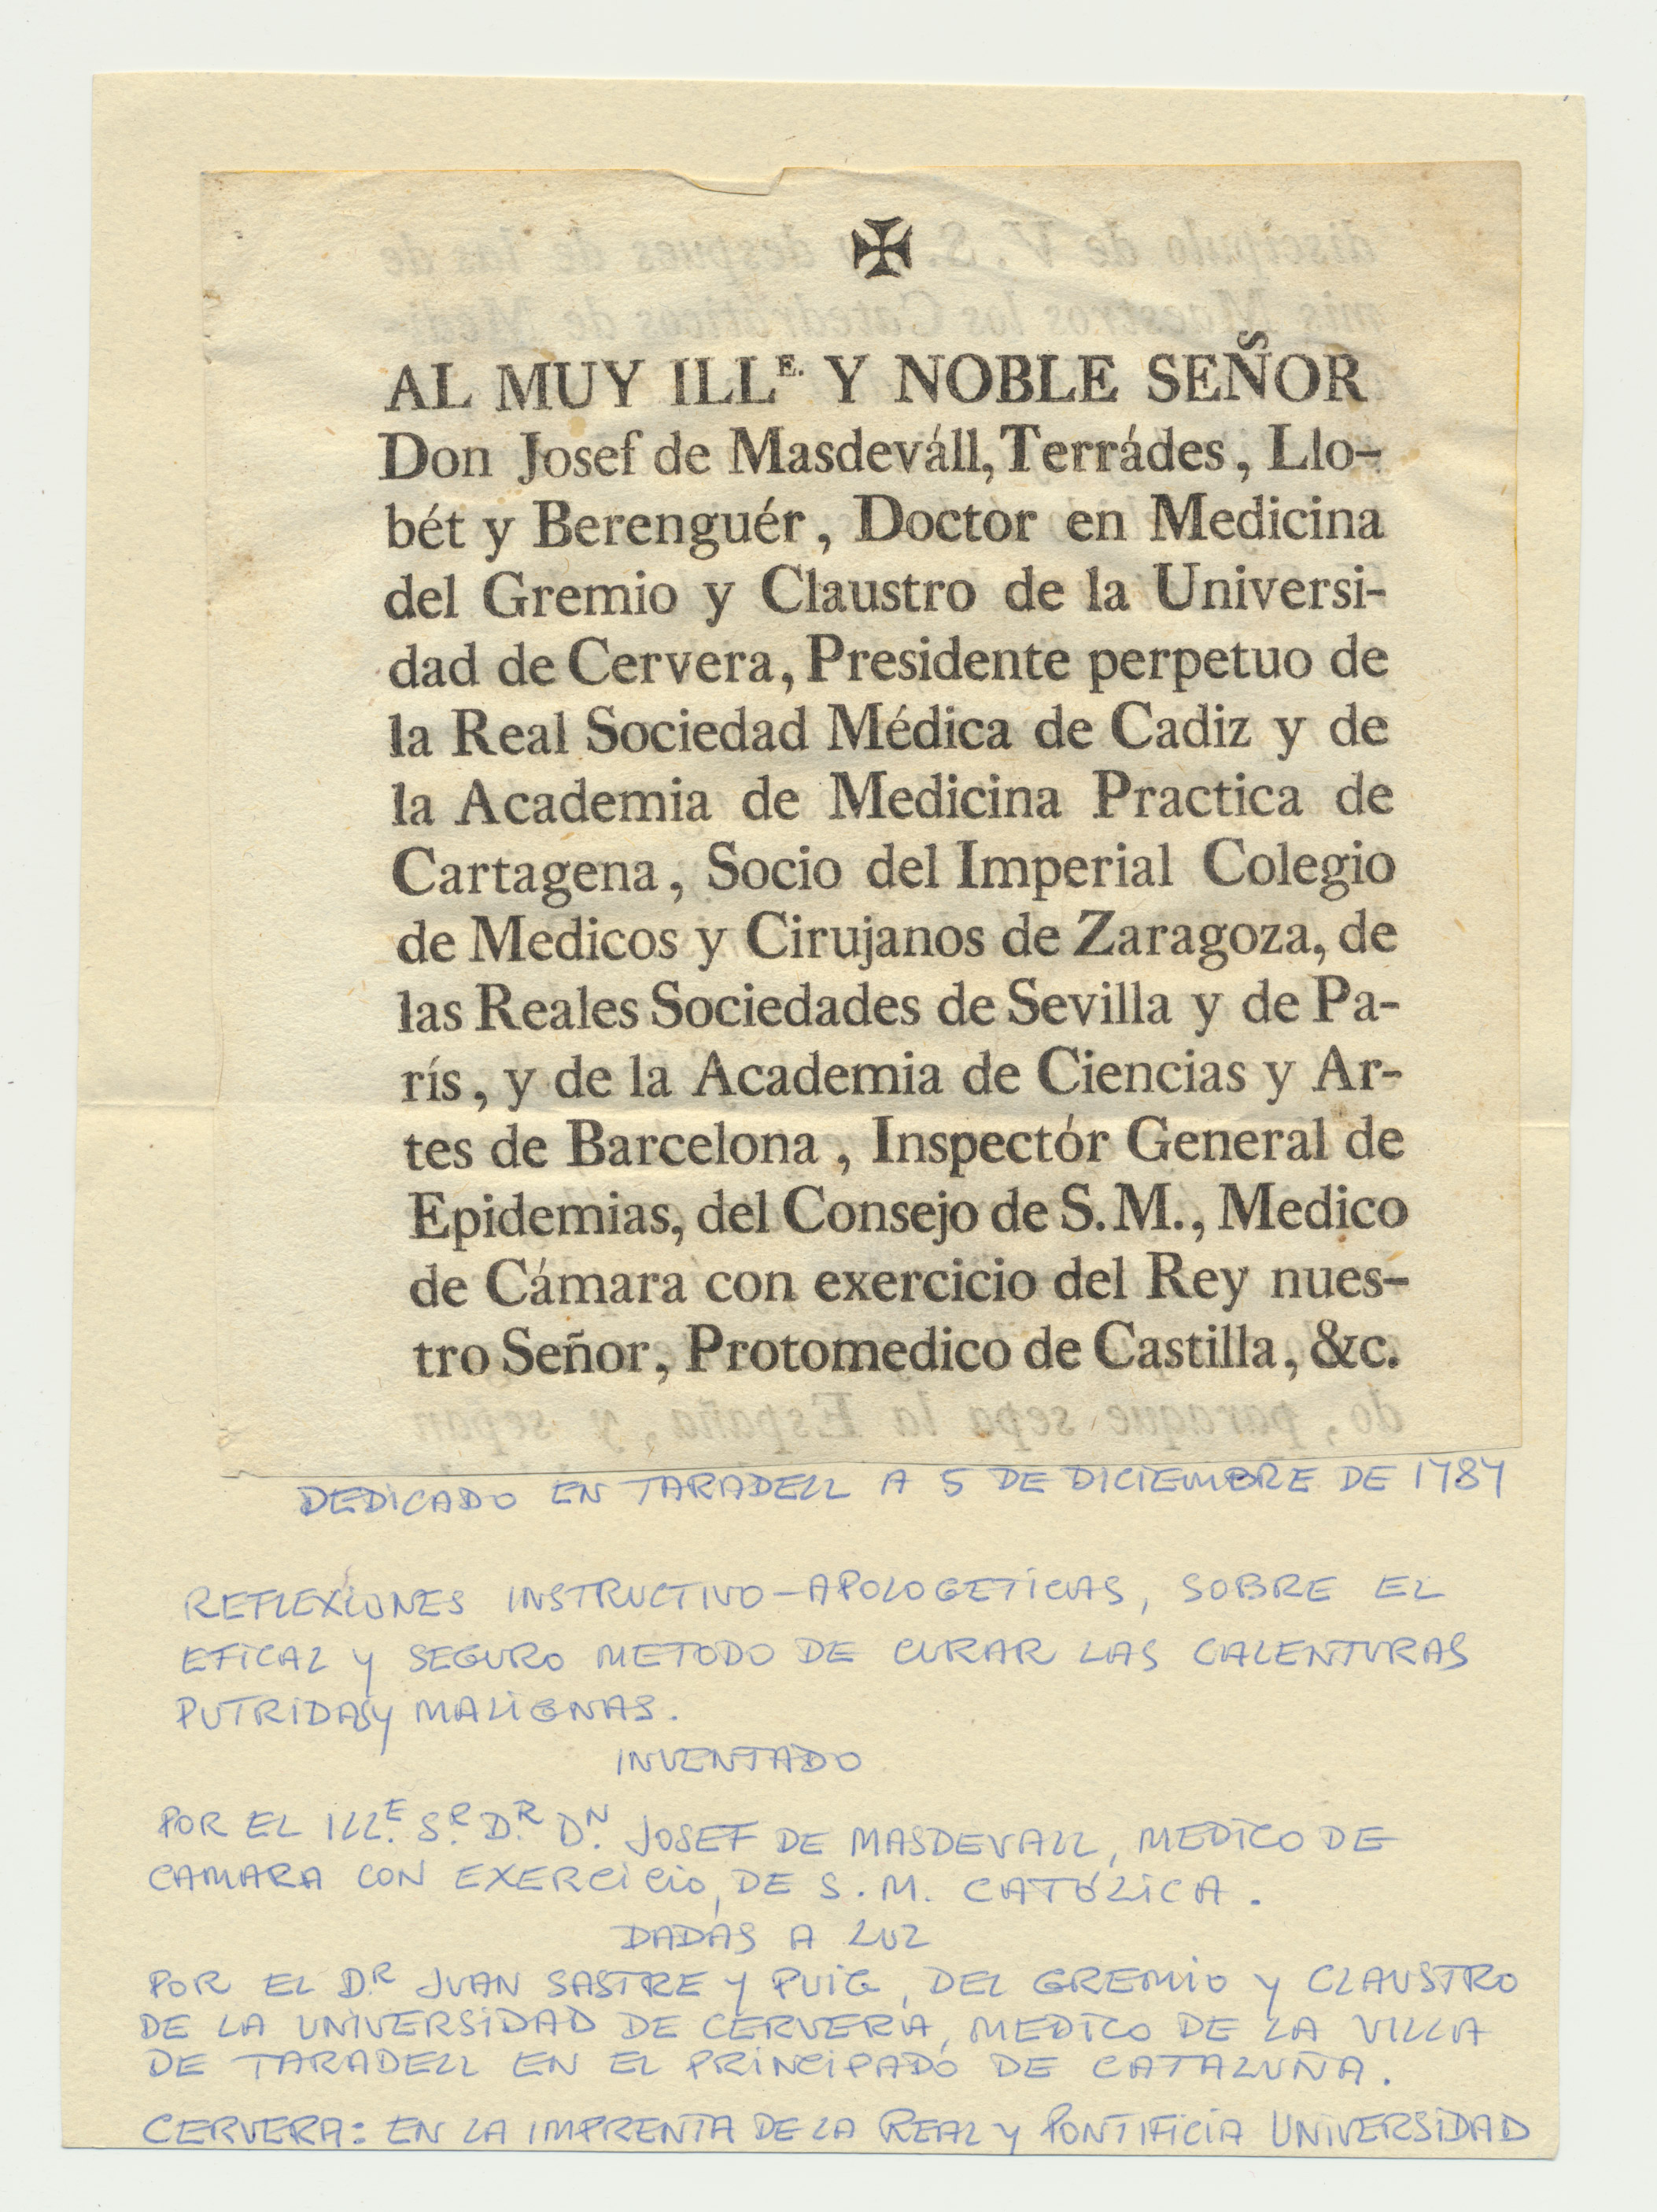 ✠
AL MUY ILLᴱ. Y NOBLE SEÑOR
Don Josef de Masdeváll, Terrádes, Llo-
bét y Berenguér, Doctor en Medicina
del Gremio y Claustro de la Universi-
dad de Cervera, Presidente perpetuo de
la Real Sociedad Médica de Cadiz y de
la Academia de Medicina Practica de
Cartagena, Socio del Imperial Colegio
de Medicos y Cirujanos de Zaragoza, de
las Reales Sociedades de Sevilla y de Pa-
rís, y de la Academia de Ciencias y Ar-
tes de Barcelona, Inspectór General de
Epidemias, del Consejo de S. M., Medico
de Cámara con exercicio del Rey nues-
tro Señor, Protomedico de Castilla, &c.
DEDICADO EN TARADELL A 5 DE DICIEMBRE DE 1787
REFLEXIONES INSTRUCTIVO-APOLOGETICAS, SOBRE EL
EFICAZ Y SEGURO METODO DE CURAR LAS CALENTURAS
PUTRIDAS Y MALIGNAS.
INVENTADO
POR EL ILLᴱ. Sᴿ. Dᴿ. Dᴺ. JOSEF DE MASDEVALL, MEDICO DE
CAMARA CON EXERCICIO, DE S. M. CATÓLICA.
DADAS A LUZ
POR EL Dᴿ JUAN SASTRE Y PUIG, DEL GREMIO Y CLAUSTRO
DE LA UNIVERSIDAD DE CERVERA, MEDICO DE LA VILLA
DE TARADELL EN EL PRINCIPADO DE CATALUÑA.
CERVERA: EN LA IMPRENTA DE LA REAL Y PONTIFICIA UNIVERSIDAD